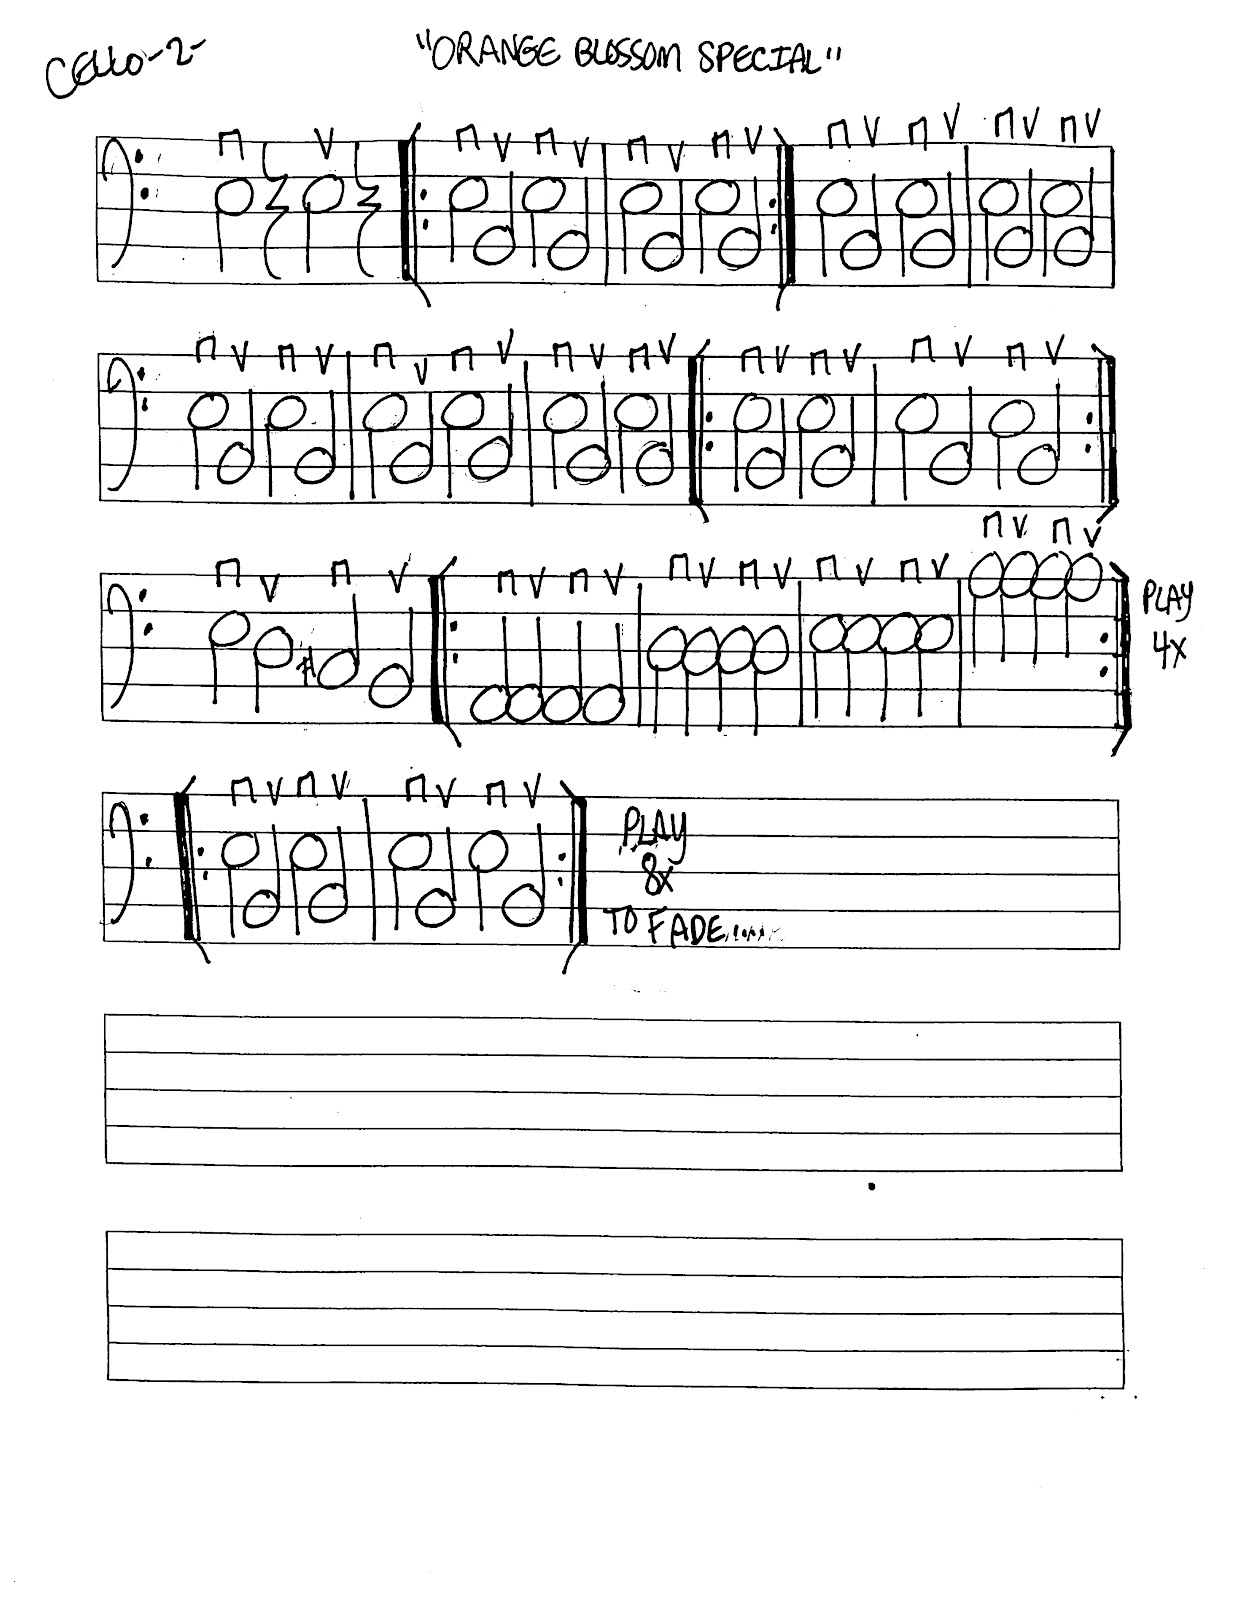 CELLO -2-
"ORANGE BLOSSOM SPECIAL"
PLAY
4X
PLAY
8X
TO FADE......